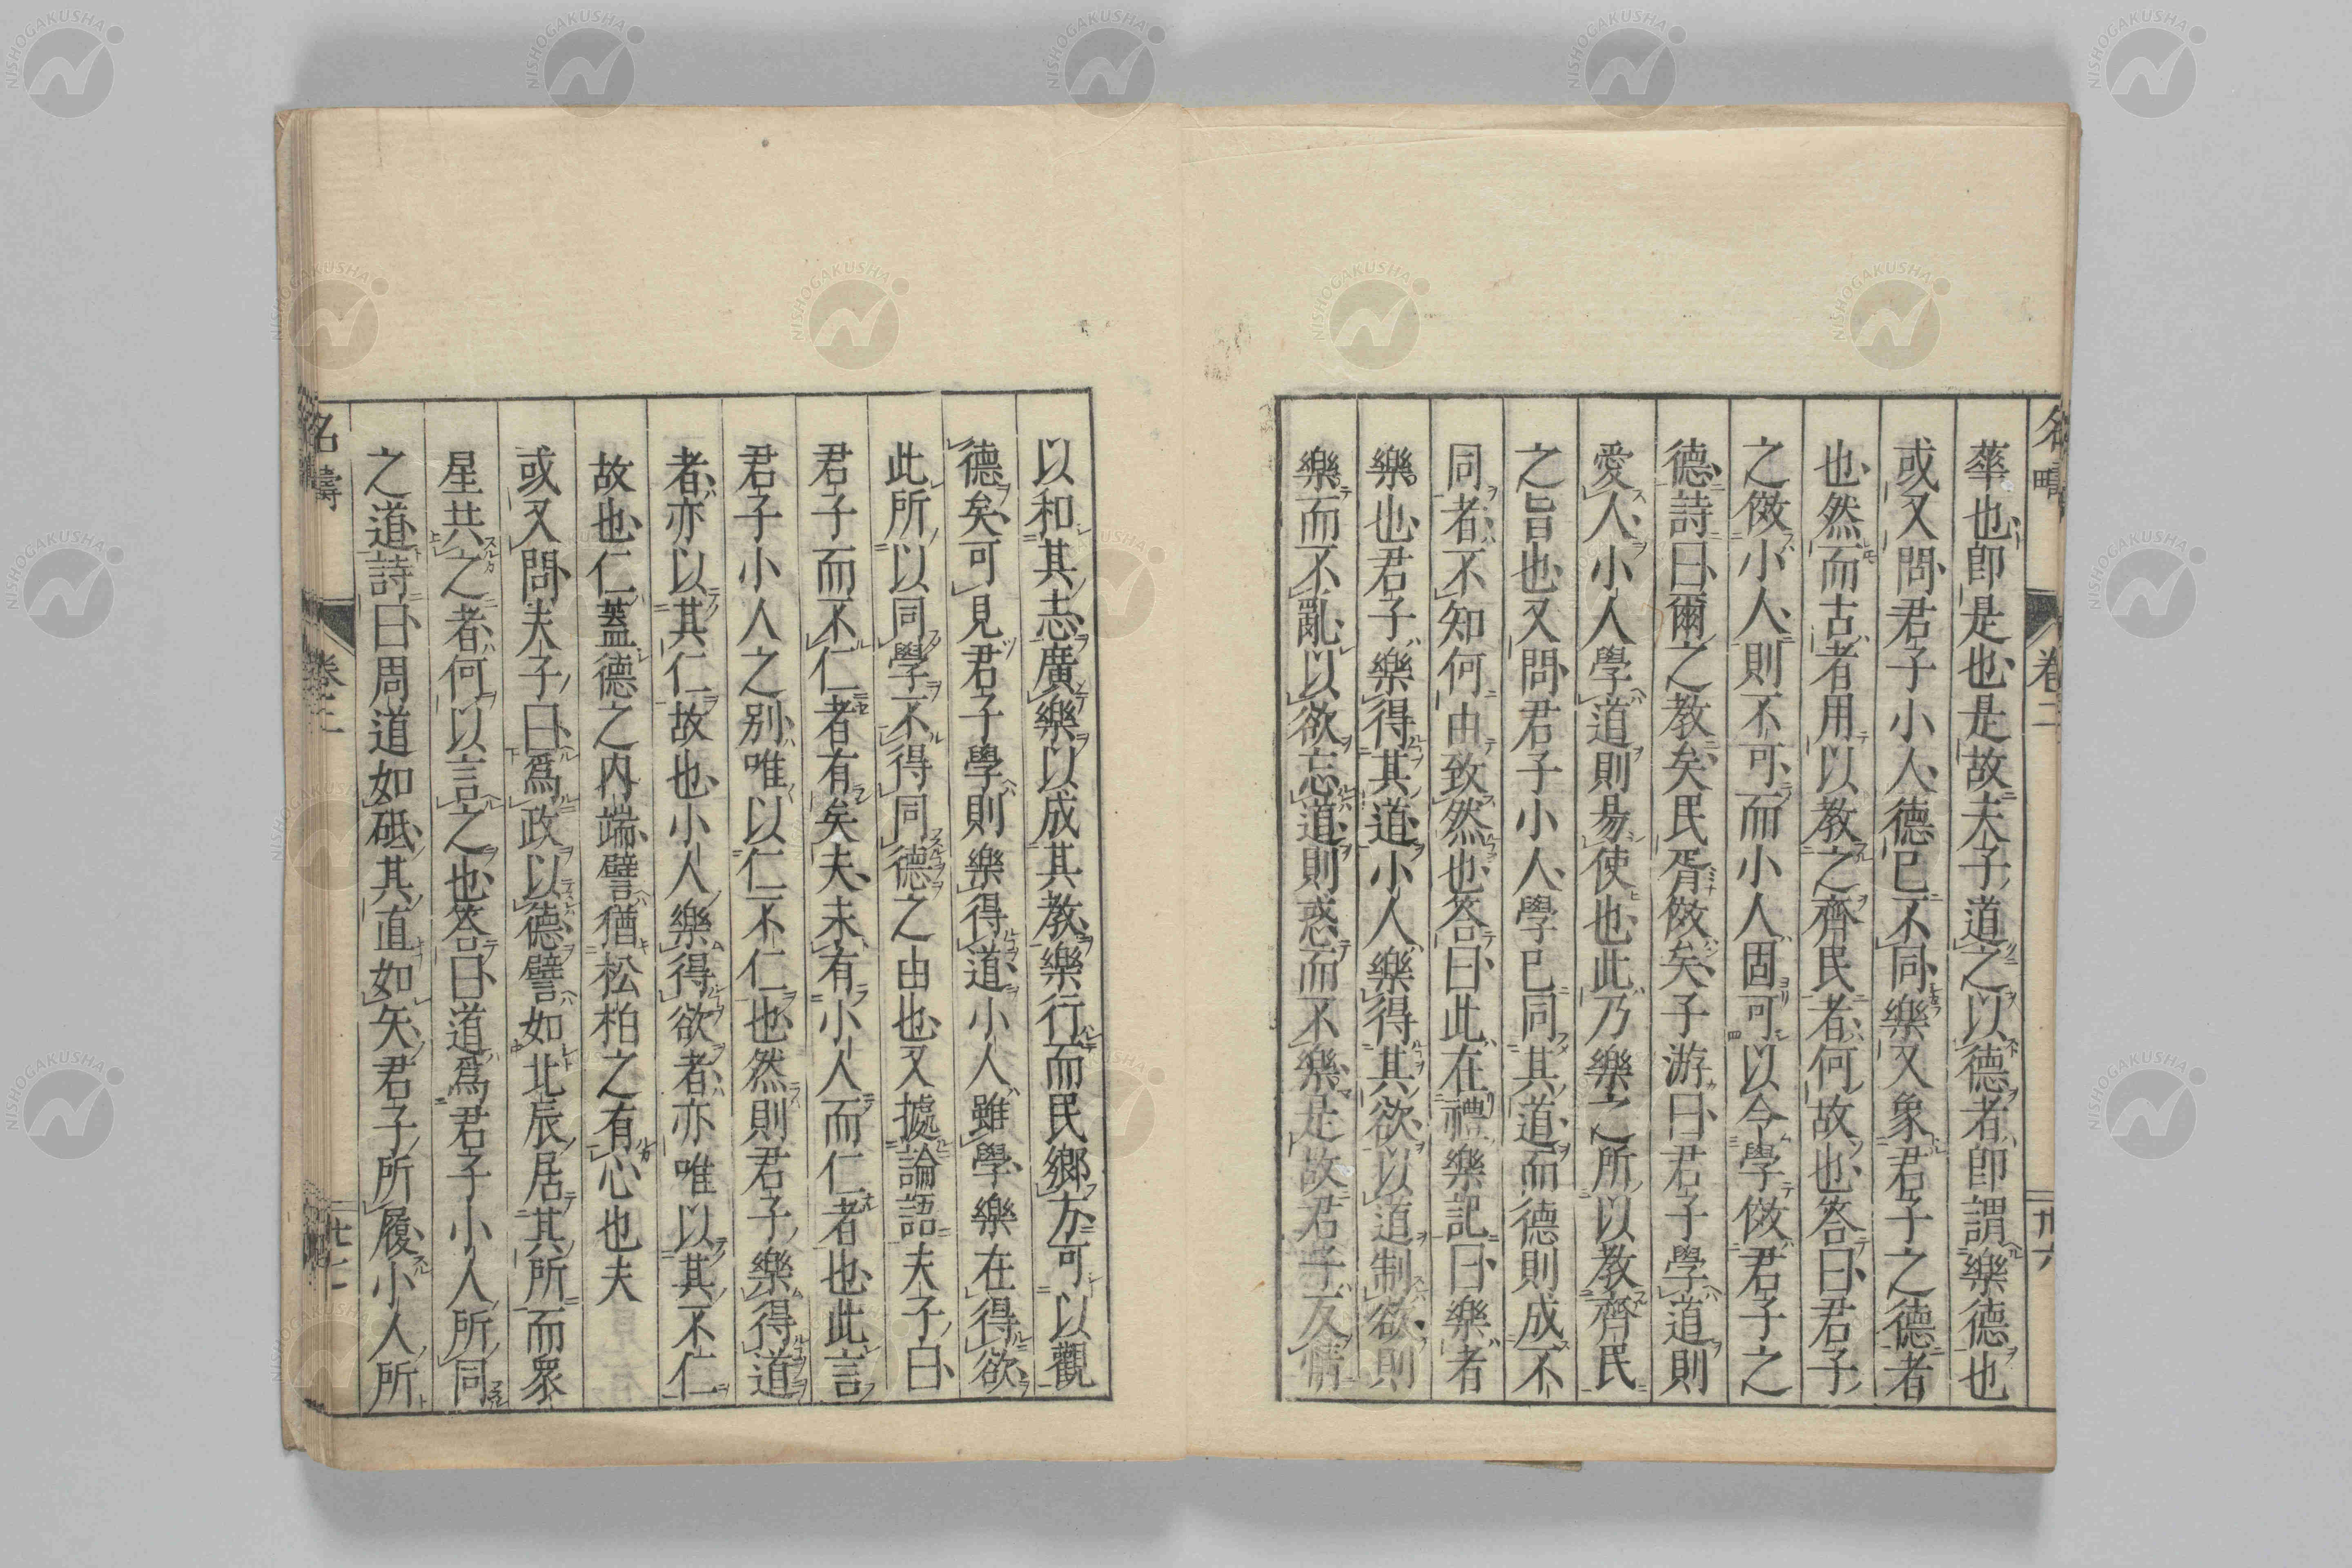 名疇 卷二 卅六
華也即是也是故夫子道之以德者即謂樂德也
或又問君子小人德已不同樂又象君子之德者
也然而古者用以教之齊民者何故也答曰君子
之傚小人則不可而小人固可以令學傚君子之
德詩曰爾之教矣民胥傚矣子游曰君子學道則
愛人小人學道則易使也此乃樂之所以教齊民
之旨也又問君子小人學已同其道而德則成不
同者不知何由致然也答曰此在禮樂記曰樂者
樂也君子樂得其道小人樂得其欲以道制欲則
樂而不亂以欲忘道則惑而不樂是故君子反情
以和其志廣樂以成其教樂行而民鄉方可以觀
德矣可見君子學則樂得道小人雖學樂在得欲
此所以同學不得同德之由也又據論語夫子曰
君子而不仁者有矣夫未有小人而仁者也此言
君子小人之別唯以仁不仁也然則君子樂得道
者亦以其仁故也小人樂得欲者亦唯以其不仁
故也仁蓋德之內端譬猶松柏之有心也夫
或又問夫子曰爲政以德譬如北辰居其所而衆
星共之者何以言之也答曰道爲君子小人所同
之道詩曰周道如砥其直如矢君子所履小人所
名疇 卷二 卅七
NISHOGAKUSHA